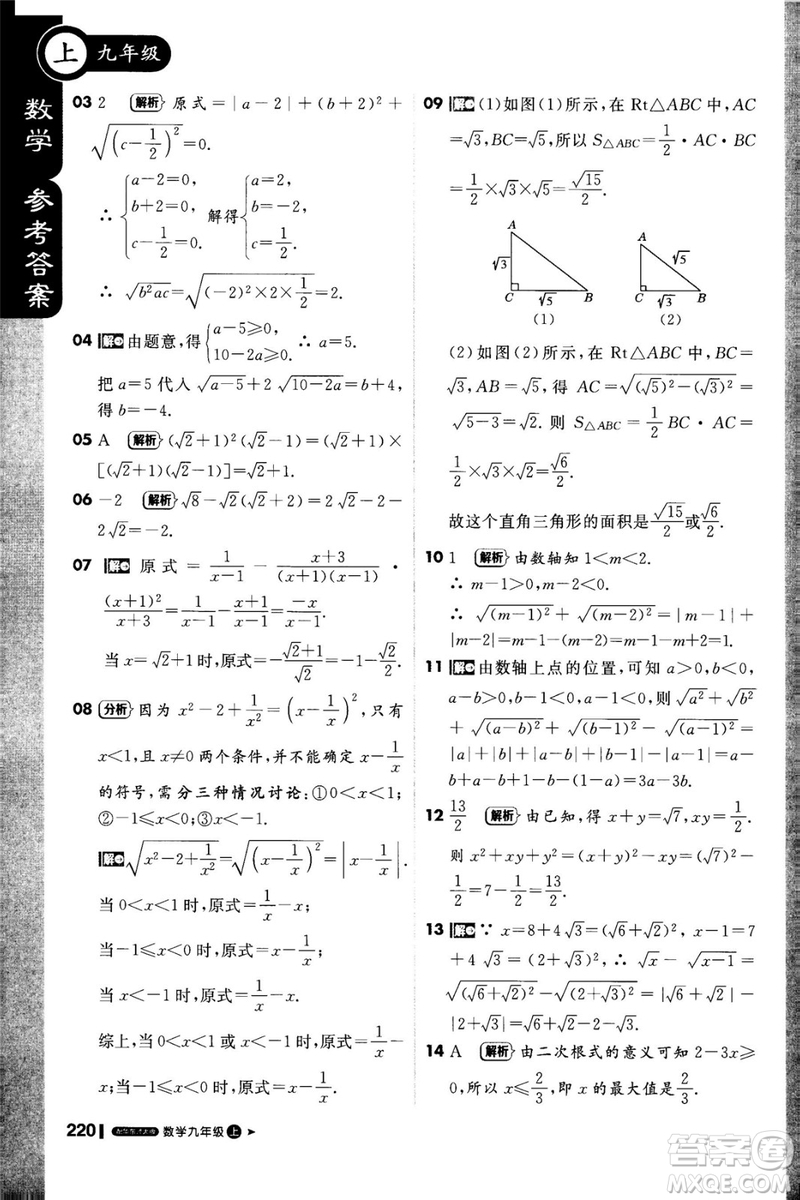 上 九年级
数学 参考答案
03 2 解析 原式=|a-2|+(b+2)²+
√((c-1/2)²)=0.
∴ {a-2=0, b+2=0, c-1/2=0. 解得 {a=2, b=-2, c=1/2.
∴ √(b²ac)=√((-2)²×2×1/2)=2.
04 解 由题意,得{a-5≥0, 10-2a≥0. ∴ a=5.
把 a=5 代入 √(a-5)+2√(10-2a)=b+4,
得 b=-4.
05 A 解析 (√2+1)²(√2-1)=(√2+1)×
[(√2+1)(√2-1)]=√2+1.
06 -2 解析 √8-√2(√2+2)=2√2-2-
2√2=-2.
07 解 原式=1/(x-1)-(x+3)/((x+1)(x-1))·
(x+1)²/(x+3)=1/(x-1)-(x+1)/(x-1)=-x/(x-1).
当 x=√2+1 时,原式=-(√2+1)/√2=-(√2+2)/2.
08 分析 因为 x²-2+1/x²=(x-1/x)²,只有
x<1,且 x≠0 两个条件,并不能确定 x-1/x
的符号,需分三种情况讨论:①0<x<1;
②-1≤x<0;③x<-1.
解 √(x²-2+1/x²)=√((x-1/x)²)=|x-1/x|.
当 0<x<1 时,原式=1/x-x;
当-1≤x<0 时,原式=x-1/x;
当 x<-1 时,原式=1/x-x.
综上,当 0<x<1 或 x<-1 时,原式=1/x-x;
当-1≤x<0 时,原式=x-1/x.
09 解 (1)如图(1)所示,在 Rt△ABC 中,AC
=√3,BC=√5,所以 S△ABC=1/2·AC·BC
=1/2×√3×√5=√15/2.
A √3 C √5 B
A √5 C √3 B
(1) (2)
(2)如图(2)所示,在 Rt△ABC 中,BC=
√3,AB=√5,得 AC=√((√5)²-(√3)²)=
√(5-3)=√2. 则 S△ABC=1/2BC·AC=
1/2×√3×√2=√6/2.
故这个直角三角形的面积是√15/2或√6/2.
10 1 解析 由数轴知 1<m<2.
∴ m-1>0,m-2<0.
∴ √((m-1)²)+√((m-2)²)=|m-1|+
|m-2|=m-1+2-m=1.
11 解 由数轴上点的位置,可知 a>0,b<0,
a-b>0,b-1<0,a-1<0. 故√a²+√b²
+√((a-b)²)+√((b-1)²)-√((a-1)²)=
|a|+|b|+|a-b|+|b-1|-|a-1|=a-
b+a-b+1-b-(1-a)=3a-3b.
12 13/2 解析 由已知,得 x+y=√7,xy=1/2.
则 x²+xy+y²=(x+y)²-xy=(√7)²-
1/2=7-1/2=13/2.
13 解 ∵ x=8+4√3=(√6+√2)²,x-1=7
+4√3=(2+√3)²,∴ √x-√(x-1)=
√((√6+√2)²)-√((2+√3)²)=|√6+√2|-
|2+√3|=√6+√2-2-√3.
14 A 解析 由二次根式的意义可知 2-3x≥
0,所以 x≤2/3,即 x 的最大值是2/3.
220 数学九年级 上
答案圈
MXQE.COM